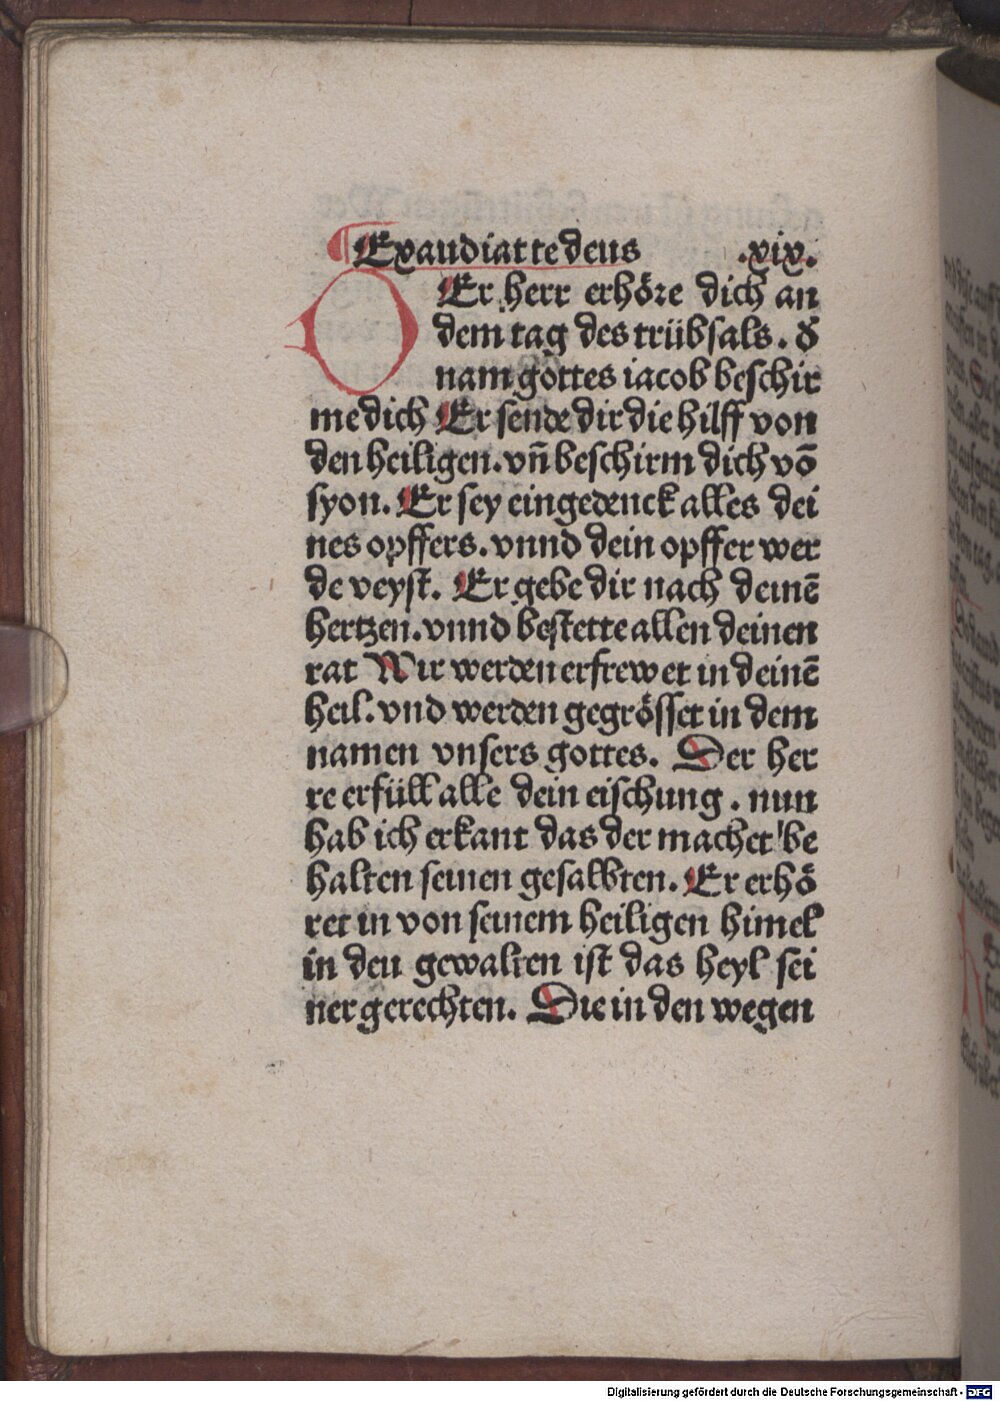 Exaudiat te deus .xix.
OEr herr erhöꝛe dich an
dem tag des trübsals. ð
nam gottes iacob beschir
me dich Er sende dir die hilff von
den heiligen. vn̄ beschirm dich vō
syon. Er sey eingedenck alles dei
nes opffers. vnnd dein opffer wer
de veyst. Er gebe dir nach deinē
hertzen. vnnd bestette allen deinen
rat Wir werden erfrewet in deinē
heil. vnd werden gegrösset in dem
namen vnsers gottes. Der her
re erfüll alle dein eischung. nun
hab ich erkant das der machet be
halten seinen gesalbten. Er erhö
ret in von seinem heiligen himel
in deu gewalten ist das heyl sei
ner gerechten. Die in den wegen
Digitalisierung gefördert durch die Deutsche Forschungsgemeinschaft - DFG